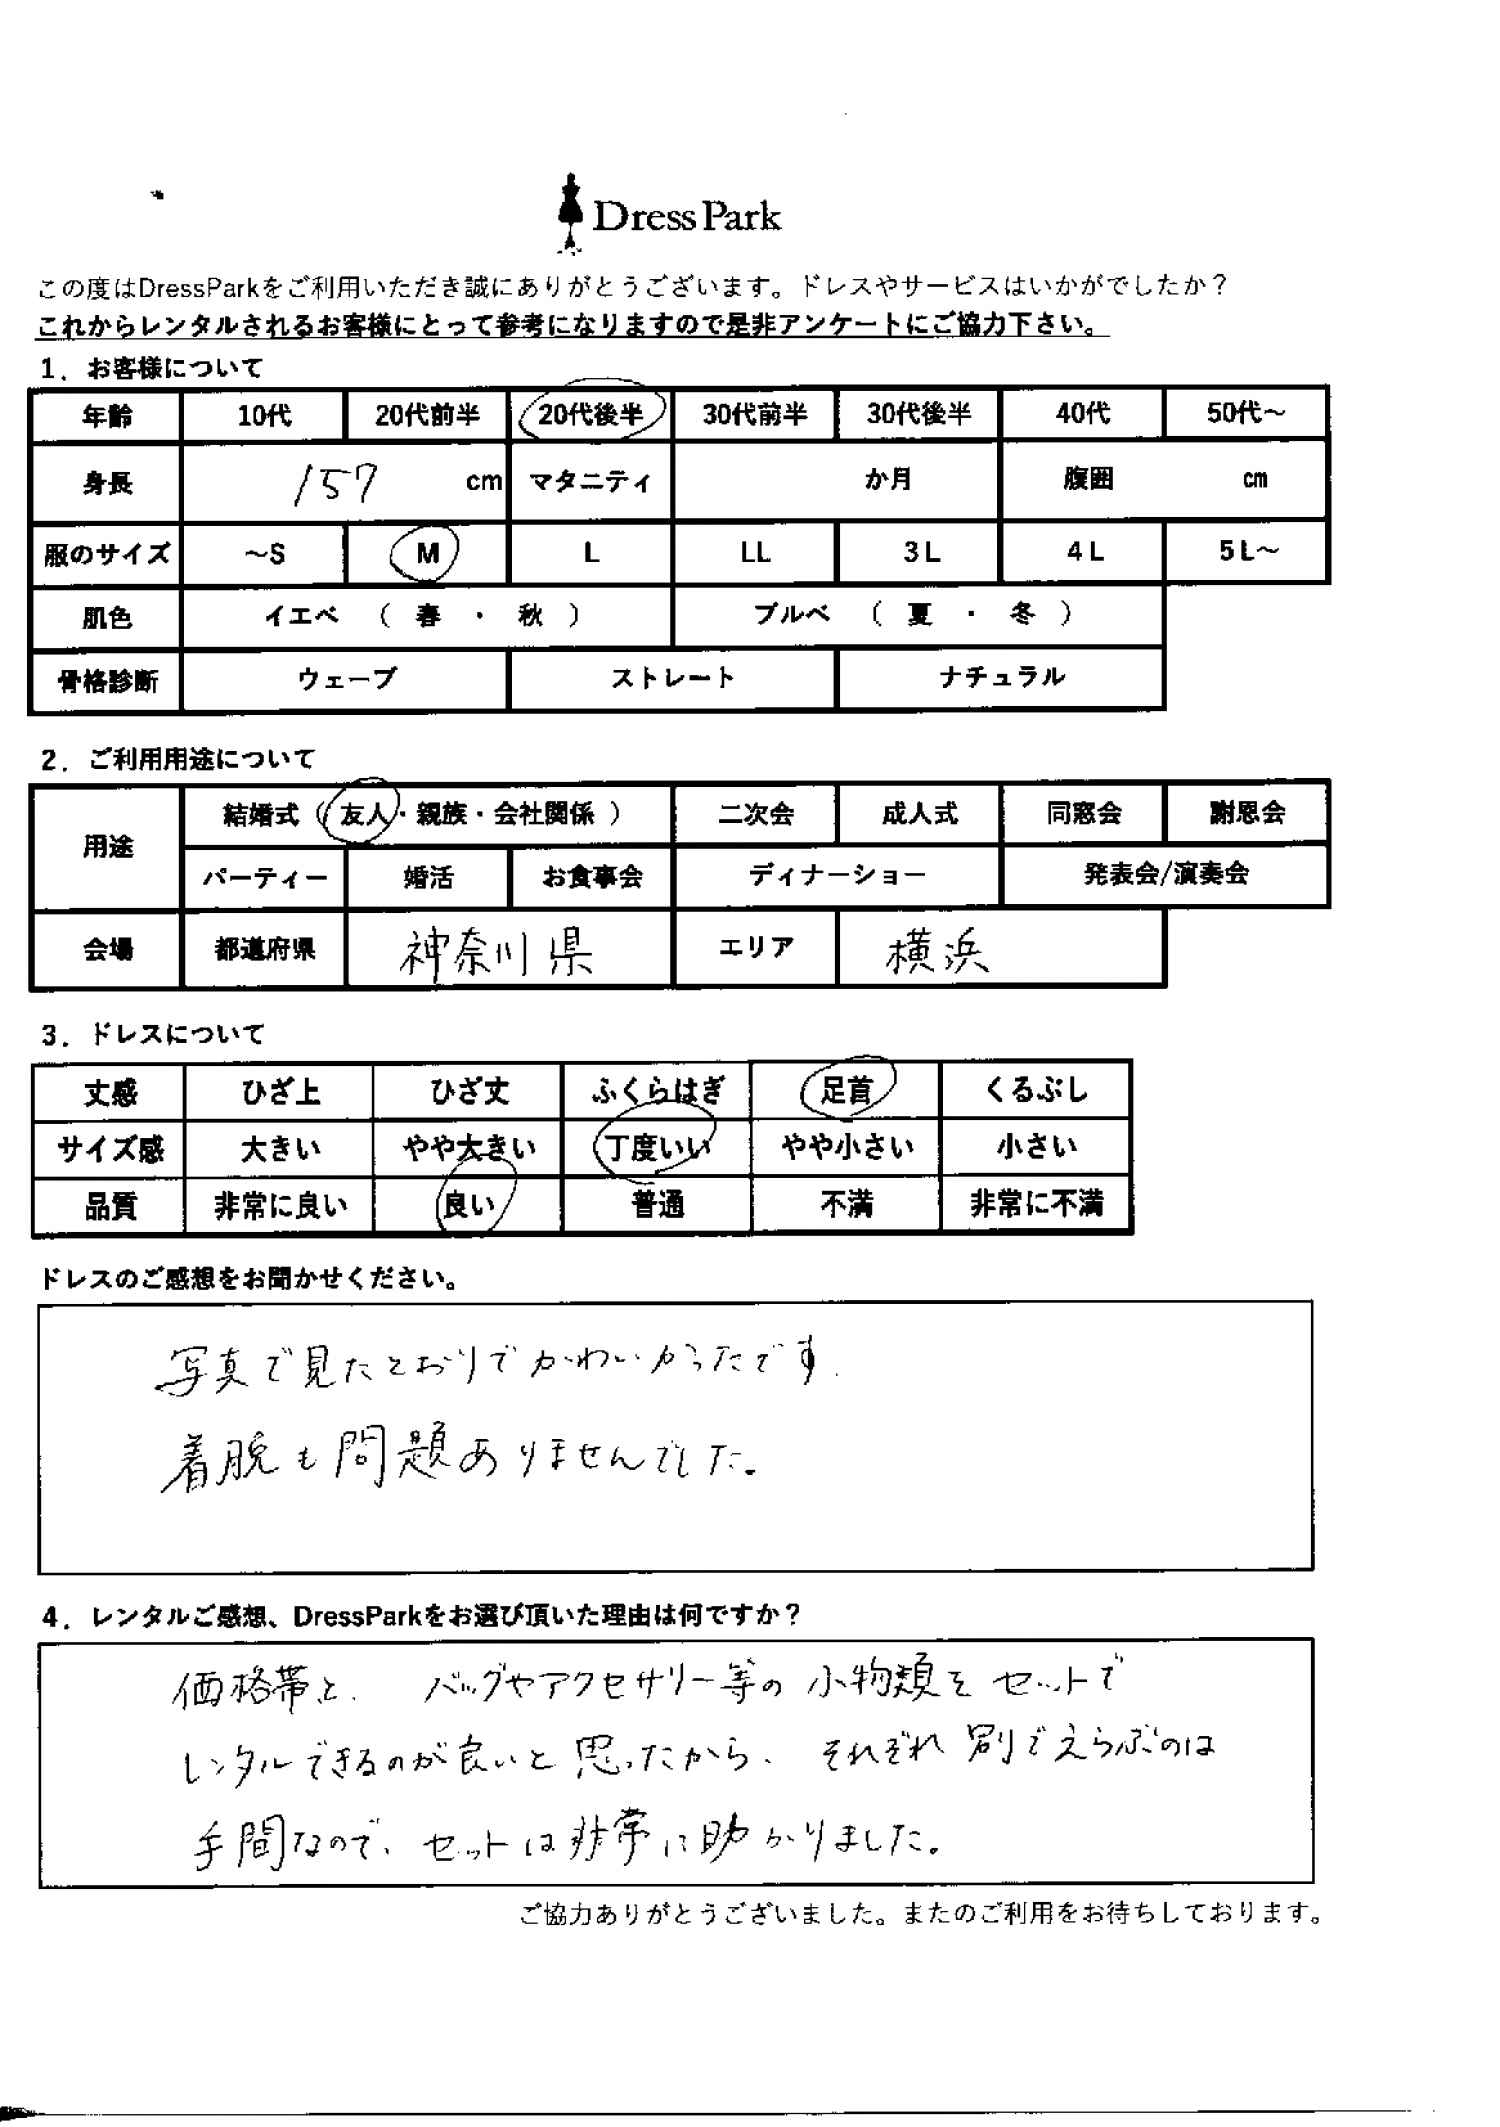 Dress Park
この度はDressParkをご利用いただき誠にありがとうございます。ドレスやサービスはいかがでしたか？
これからレンタルされるお客様にとって参考になりますので是非アンケートにご協力下さい。
1．お客様について
年齢 10代 20代前半 20代後半 30代前半 30代後半 40代 50代～
身長 157 cm マタニティ か月 腹囲 cm
服のサイズ ～S M L LL 3L 4L 5L～
肌色 イエベ （ 春 ・ 秋 ） ブルベ （ 夏 ・ 冬 ）
骨格診断 ウェーブ ストレート ナチュラル
2．ご利用用途について
用途 結婚式（ 友人・親族・会社関係 ） 二次会 成人式 同窓会 謝恩会
パーティー 婚活 お食事会 ディナーショー 発表会/演奏会
会場 都道府県 神奈川県 エリア 横浜
3．ドレスについて
丈感 ひざ上 ひざ丈 ふくらはぎ 足首 くるぶし
サイズ感 大きい やや大きい 丁度いい やや小さい 小さい
品質 非常に良い 良い 普通 不満 非常に不満
ドレスのご感想をお聞かせください。
写真で見たとおりでかわいかったです.
着脱も問題ありませんでした。
4．レンタルご感想、DressParkをお選び頂いた理由は何ですか？
価格帯と、バッグやアクセサリー等の小物類をセットで
レンタルできるのが良いと思ったから、それぞれ別でえらぶのは
手間なので、セットは非常に助かりました。
ご協力ありがとうございました。またのご利用をお待ちしております。